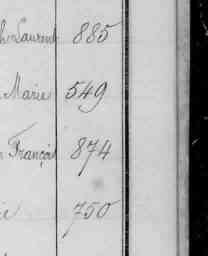 Laurent 885
Marie 549
François 874
750